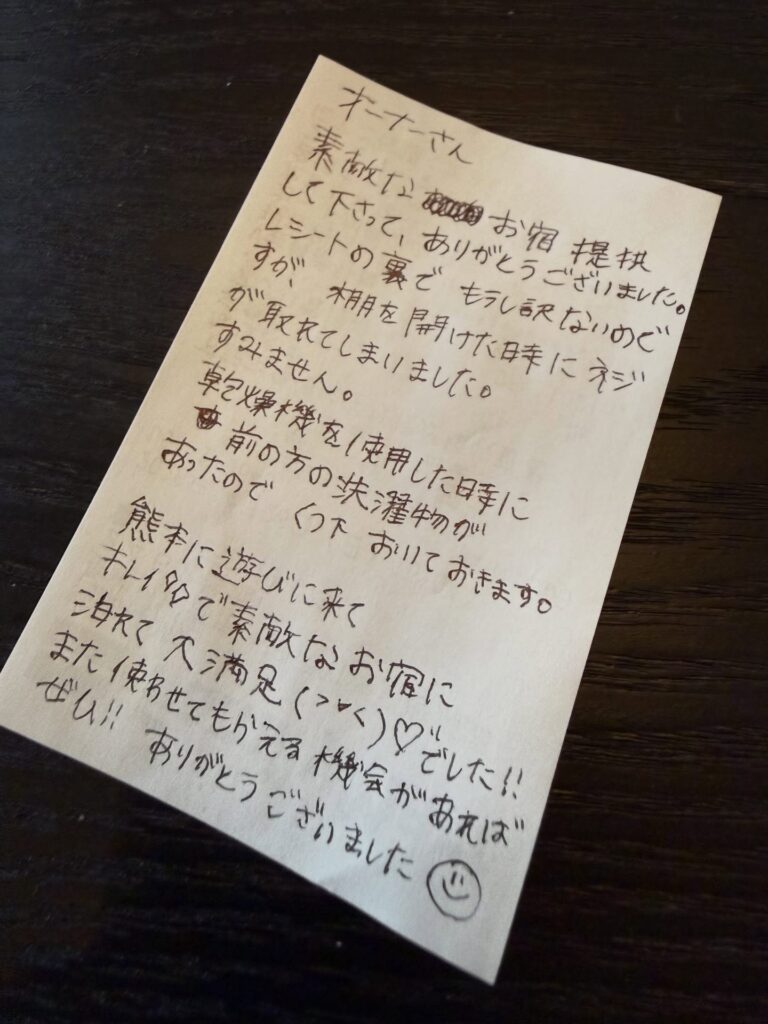 オーナーさん
素敵な お宿 提供
して下さって、ありがとうございました。
レシートの裏で もうし訳ないので
すが、棚を開けた時にネジ
が取れてしまいました。
すみません。
乾燥機を使用した時に
前の方の洗濯物が
あったので くつ下 おいておきます。
熊本に遊びに来て
キレイで素敵なお宿に
泊れて 大満足(>▽<)♡でした!!
また使わせてもらえる機会があれば
ぜひ!! ありがとうございました